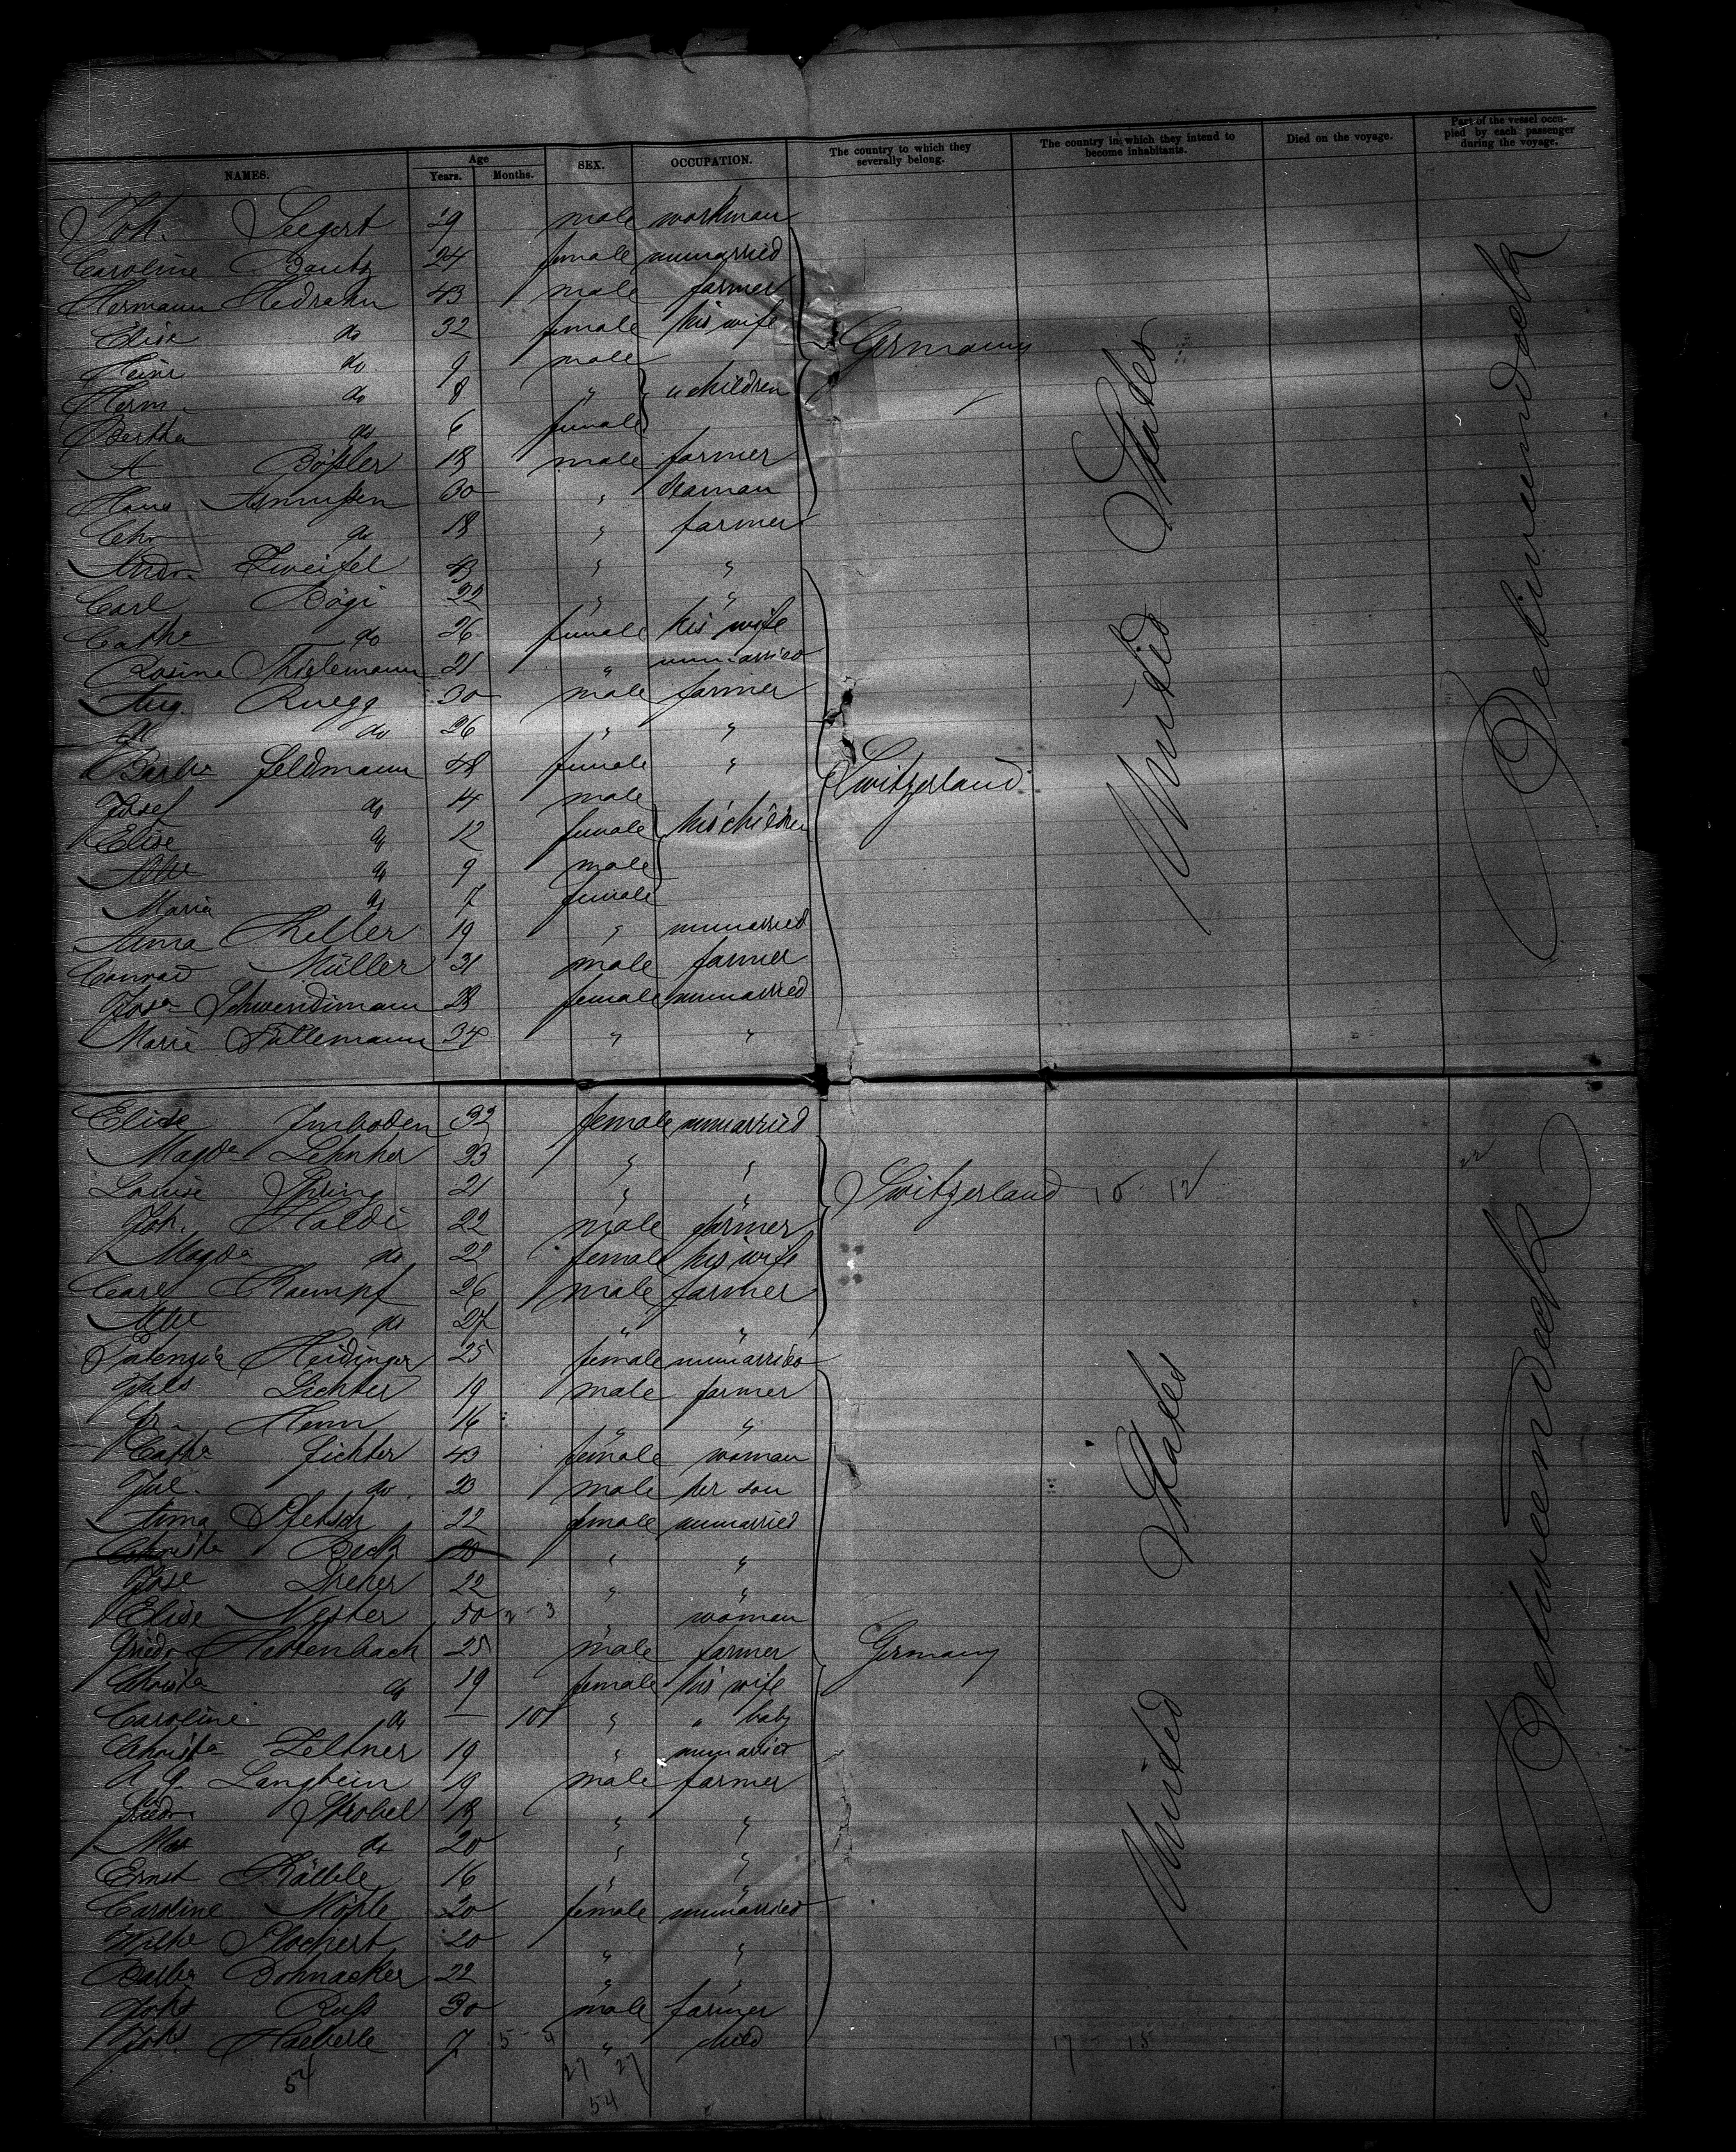 NAMES. Age Years. Months. SEX. OCCUPATION. The country to which they severally belong. The country in which they intend to become inhabitants. Died on the voyage. Part of the vessel occupied by each passenger during the voyage.
Joh. Seegert 29 male workman
Caroline Bautz 24 female unmarried
Hermann 43 male farmer
Elise do 32 female his wife
Heinr do 9 male
Herm. do 8 " " children
Bertha do 6 female
Germany
A Bößler 18 male farmer
Hans Asmußen 30 " seaman
Chr do 18 " farmer
Andr. Zweifel 43 " "
Carl Bögi 22 " "
Cathe do 26 female his wife
Rosina Thielemann 21 " unmarried
Aug. Ruegg 30 male farmer
do 26 " "
Barba Feldmann 48 female "
Josef do 14 male
Elise do 12 female his children
Albe do 9 male
Maria do 7 female
Switzerland
Anna Keller 19 " unmarried
Conrad Müller 31 male farmer
Josa Schwendimann 28 female unmarried
Marie Füllemann 34 " "
United States
Between deck
Elise Imboden 32 female unmarried
Magda Lehnher 23 " "
Louise Thring 21 " "
Switzerland
Joh. Haldi 22 male farmer
Magda do 22 female his wife
Carl Kaempf 26 male farmer
do 27 " "
Heidinger 25 female unmarried
Juls Lichter 19 male farmer
Fr. Henn 16 " "
Cathe Fichter 43 female woman
Jul. do 20 male her son
Anna 22 female unmarried
Christa Beck 20 " "
Jose Dreher 22 " "
Elise Nester 50 " woman
Friedr Hattenbach 25 male farmer
Christa do 19 female his wife
Caroline do — 10 " " baby
Germany
Christa Zeltner 19 " unmarried
A. G. Langbein 19 male farmer
Friedr Strobel 18 " "
Max do 20 " "
Ernst Kälble 16 " "
Caroline Mößle 20 female unmarried
Wilhe Plochert 20 " "
Barba Bohnacker 22 " "
Johs Ruß 30 male farmer
Johs Haeberle 7 " child
United States
Between deck
54
27 27
54
17 15